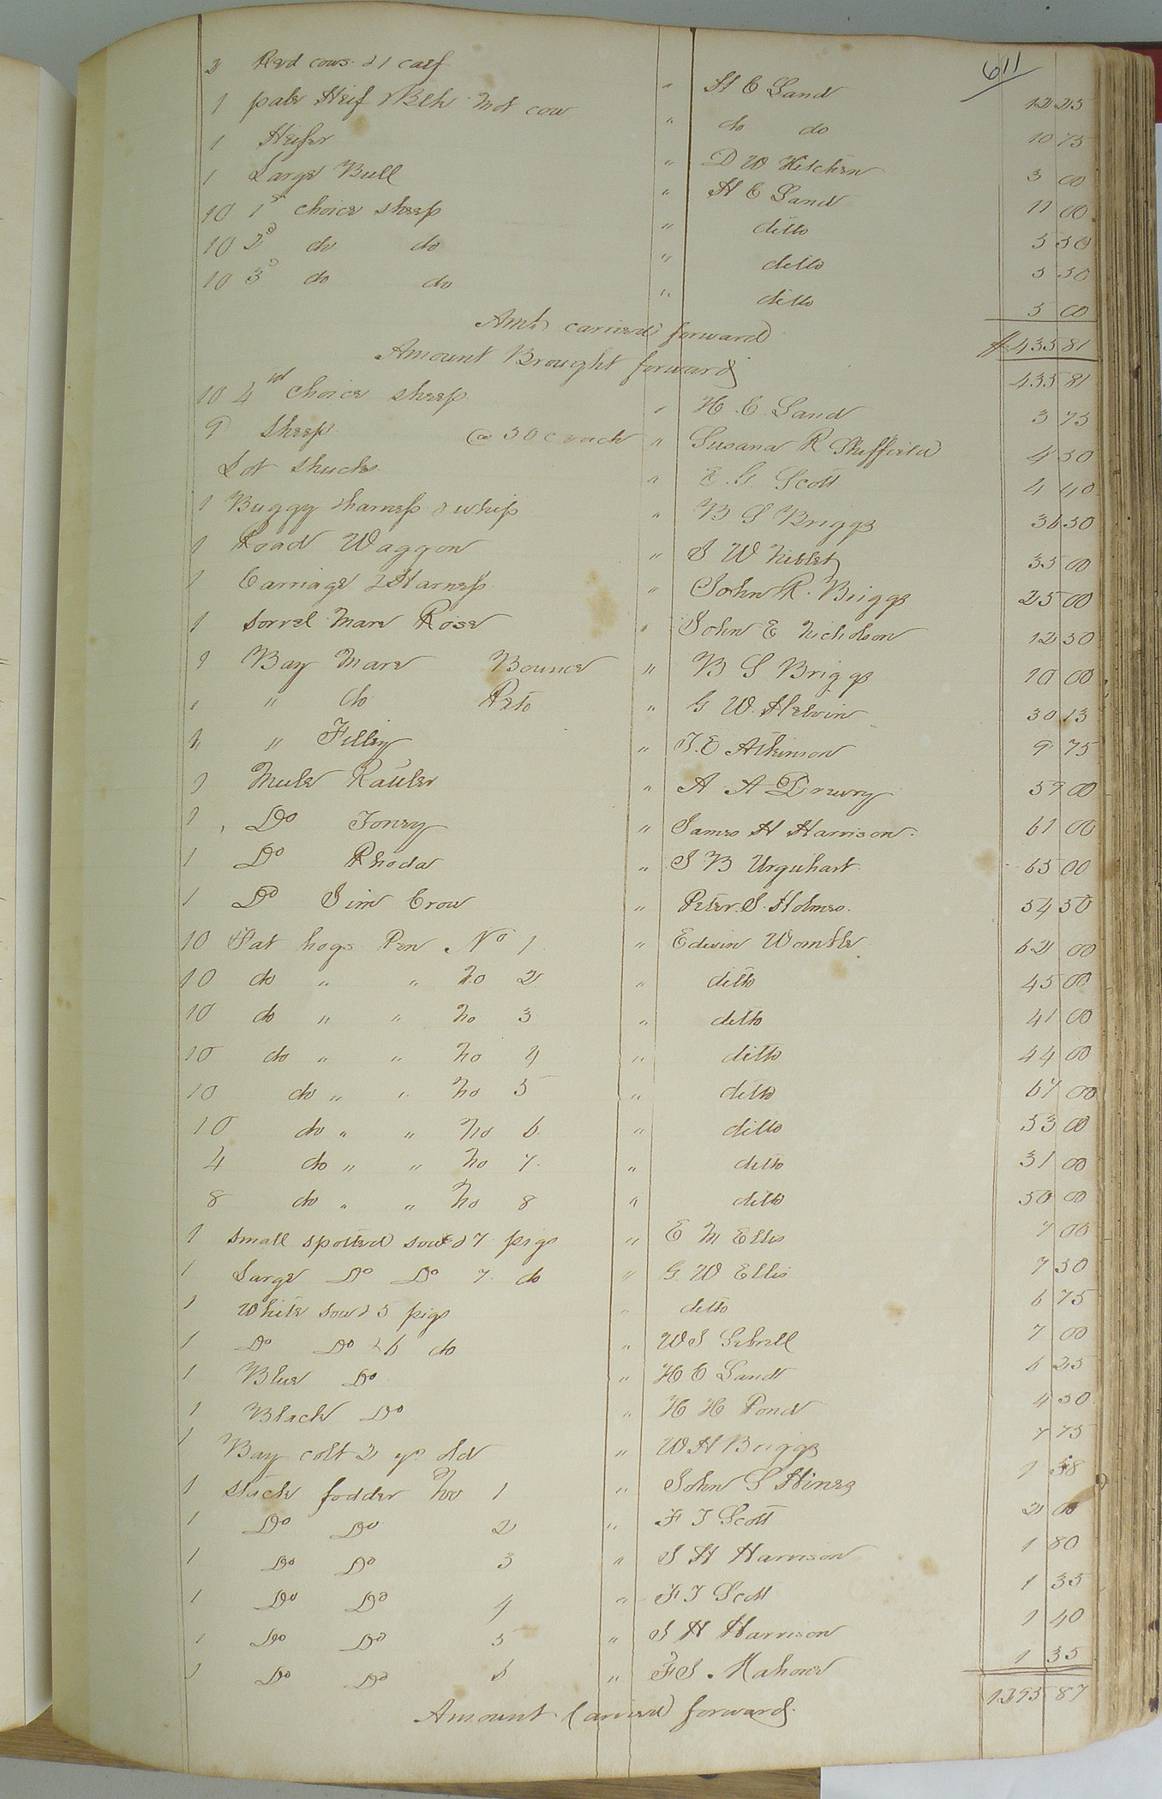 611
2 Red cows & 1 calf " H C Land 12 25
1 pale Heif & Blk Not cow " do do 10 75
1 Heifer " D W Kitchen 3 00
1 Large Bull " H C Land 11 00
10 1st choice sheep " ditto 5 50
10 2d do do " ditto 5 50
10 3d do do " ditto 5 00
Amt carried forward $435 81
Amount Brought forward 435 81
10 4 choice sheep " H. C. Land 3 75
9 sheep @ 50c each " Susana R Sheffield 4 50
Lot shucks " E. G. Scott 4 40
1 Buggy Harness & whip " B S Briggs 36 50
1 Road Waggon " S W Niblet 35 00
1 Carriage & Harness " John R. Briggs 25 00
1 Sorrel Mare Rose " John E Nicholson 12 50
1 Bay Mare Bounce " B S Briggs 10 00
" " do Peto " G W. Helvin 30 13
" " Filley " J. E Atkinson 9 75
1 Mule " A A Drewry 59 00
1 Do Toney " James H Harrison 61 00
1 Do Rhoda " S B Urquhart 65 00
1 Do Jim Crow " Peter. S. Holmes. 54 50
10 Fat hogs Pen No 1 " Edwin Womble 62 00
10 do " " No 2 " ditto 45 00
10 do " " No 3 " ditto 41 00
10 do " " No 4 " ditto 44 00
10 do " " No 5 " ditto 67 00
10 do " " No 6 " ditto 53 00
4 do " " No 7 " ditto 31 00
8 do " " No 8 " ditto 50 00
1 small spotted sow & 7 pigs " E M Ellis 7 00
1 Large Do Do 7 do " G W Ellis 7 50
1 White sow & 5 pigs " ditto 6 75
1 Do Do & 6 do " W J Sebrell 7 00
1 Blue Do " H C Land 6 25
1 Black Do " H H Pond 4 50
1 Bay colt 2 yr old " W H Briggs 7 75
1 stack fodder No 1 " John S Hines 1 58
1 Do Do 2 " F J Scott 2 00
1 Do Do 3 " J H Harrison 1 80
1 Do Do 4 " F J Scott 1 35
1 Do Do 5 " J H Harrison 1 40
1 Do Do 6 " F S. Mahone 1 35
Amount Carried forward 1395 87